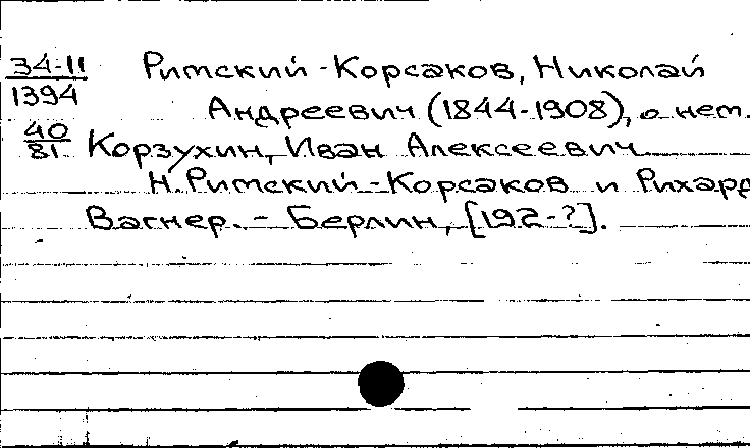 34-11 Римский-Корсаков, Николай
1394 Андреевич (1844-1908), о нем.
40
81 Корзухин, Иван Алексеевич
Н. Римский-Корсаков и Рихард
Вагнер. - Берлин, [192-?].